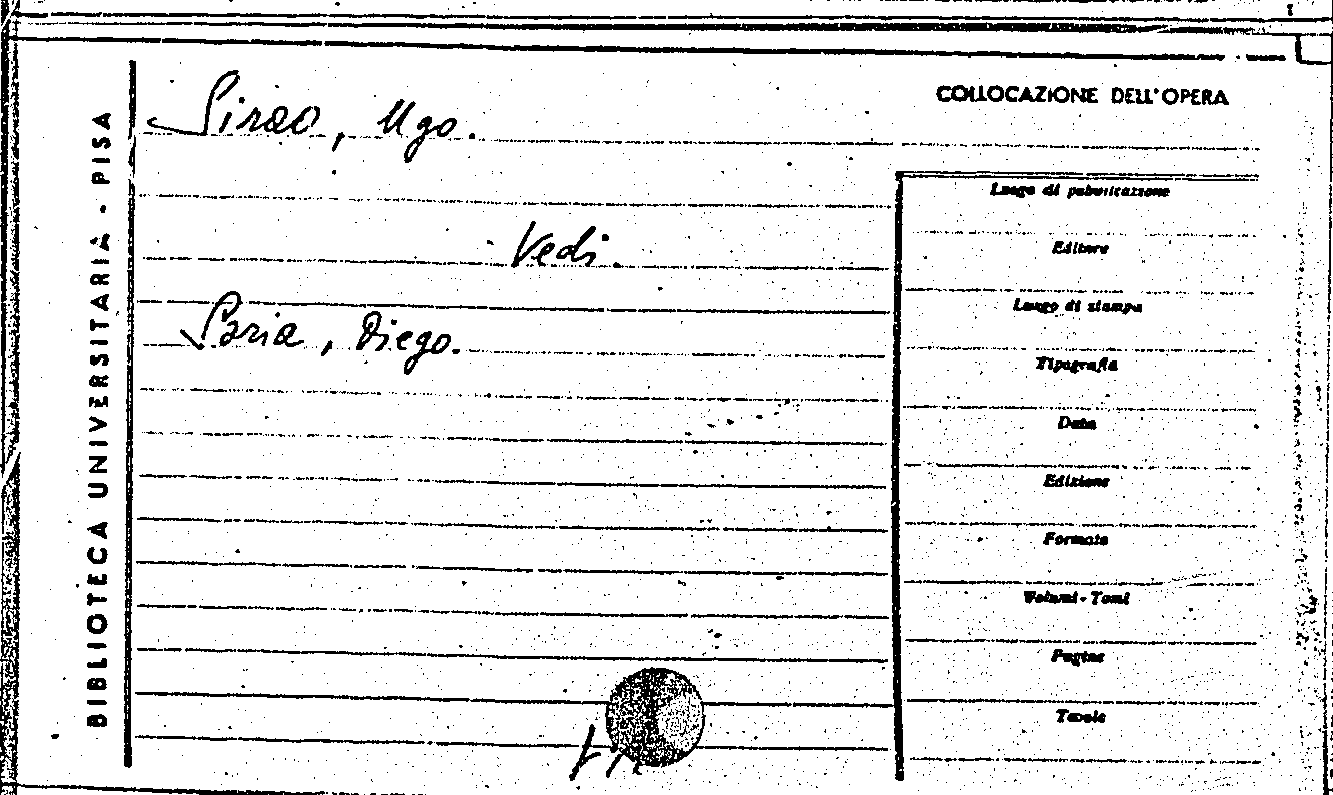 BIBLIOTECA UNIVERSITARIA - PISA
Sirao, Ugo.
Vedi.
Soria, Diego.
COLLOCAZIONE DELL'OPERA
Luogo di pubblicazione
Editore
Luogo di stampa
Tipografia
Data
Edizione
Formato
Volumi - Tomi
Pagine
Tavole